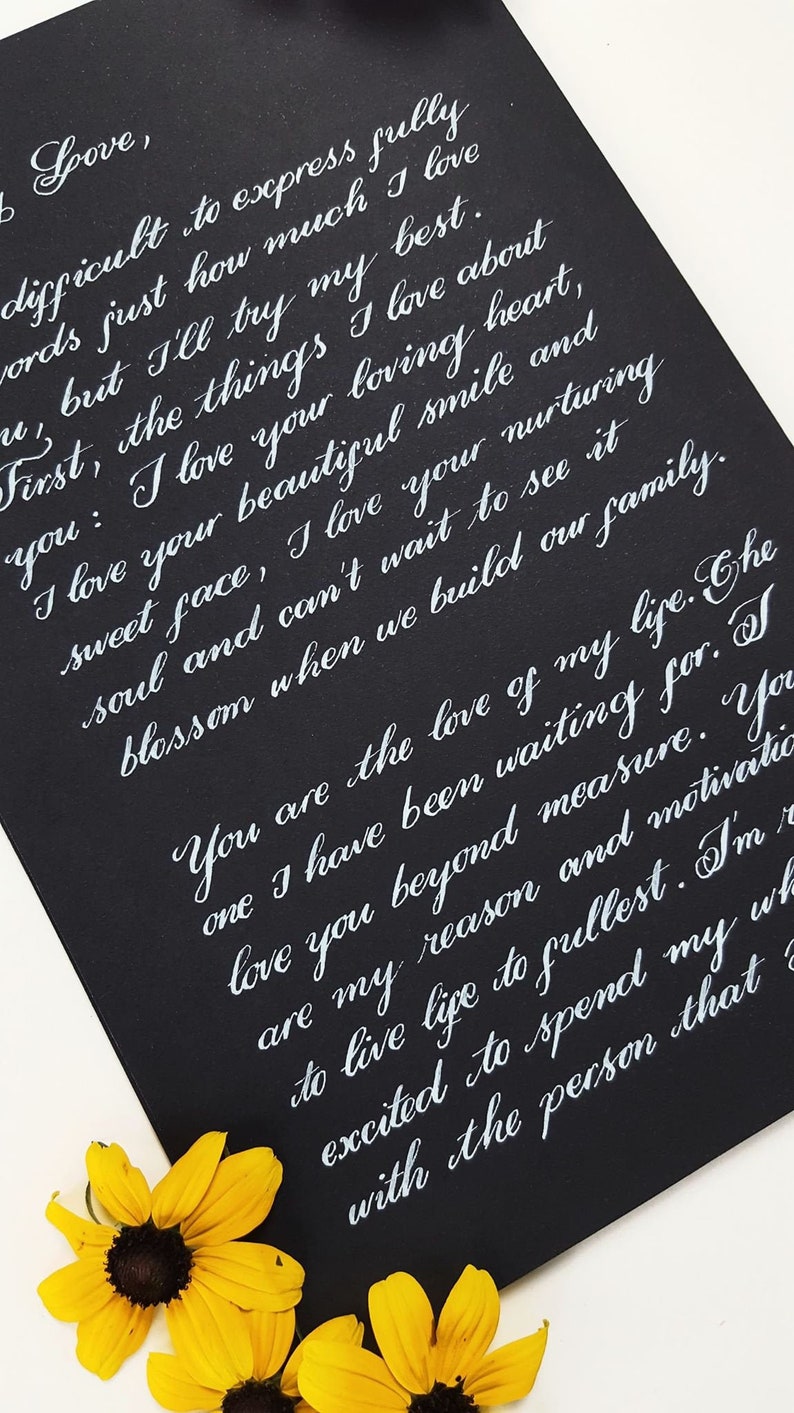 Love,
difficult to express fully
words just how much I love
but I'll try my best.
First, the things I love about
you: I love your loving heart,
I love your beautiful smile and
sweet face, I love your nurturing
soul and can't wait to see it
blossom when we build our family.
You are the love of my life. The
one I have been waiting for. I
love you beyond measure. You
are my reason and motivation
to live life to fullest. I'm
excited to spend my
with the person that